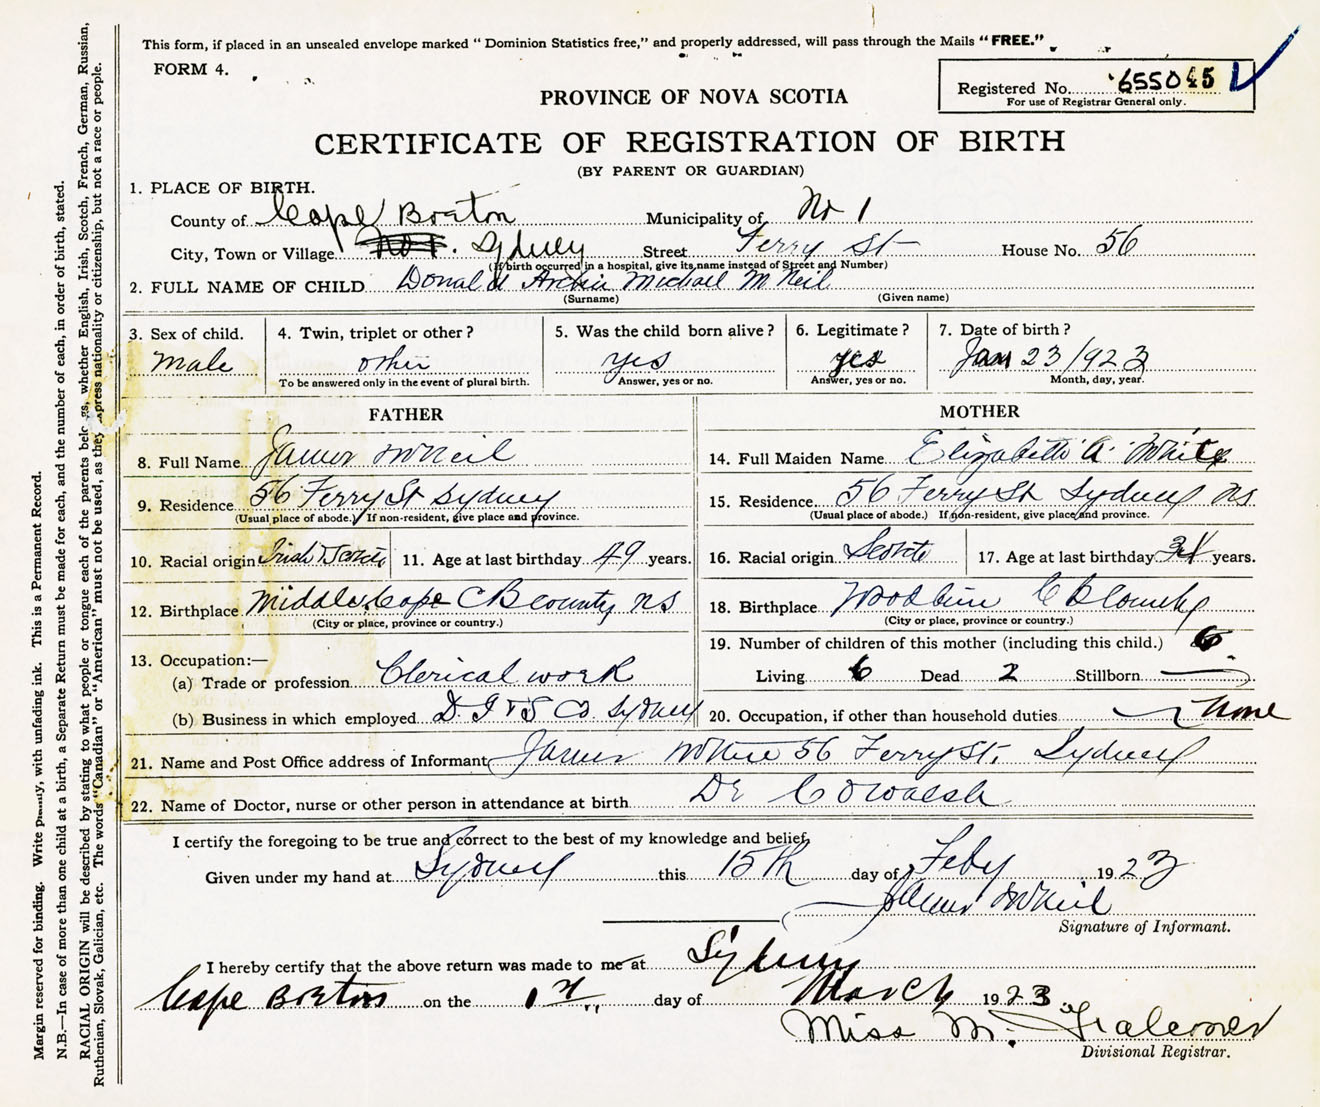 This form, if placed in an unsealed envelope marked “ Dominion Statistics free,” and properly addressed, will pass through the Mails “FREE.”
FORM 4.
Registered No. 655045
For use of Registrar General only.
PROVINCE OF NOVA SCOTIA
CERTIFICATE OF REGISTRATION OF BIRTH
(BY PARENT OR GUARDIAN)
1. PLACE OF BIRTH.
County of Cape Breton Municipality of No 1
City, Town or Village No 1. Sydney Street Ferry St House No. 56
(If birth occurred in a hospital, give its name instead of Street and Number)
2. FULL NAME OF CHILD Donald Archie Michael McNeil
(Surname) (Given name)
3. Sex of child. 4. Twin, triplet or other? 5. Was the child born alive? 6. Legitimate? 7. Date of birth?
Male other yes yes Jan 23 1923
To be answered only in the event of plural birth. Answer, yes or no. Answer, yes or no. Month, day, year.
FATHER MOTHER
8. Full Name James McNeil 14. Full Maiden Name Elizabeth A. White
9. Residence 56 Ferry St Sydney 15. Residence 56 Ferry St Sydney NS
(Usual place of abode.) If non-resident, give place and province. (Usual place of abode.) If non-resident, give place and province.
10. Racial origin Irish & Scotch 11. Age at last birthday 49 years. 16. Racial origin Scotch 17. Age at last birthday years.
12. Birthplace Middle Cape CB county NS 18. Birthplace Woodbine C B County
(City or place, province or country.) (City or place, province or country.)
19. Number of children of this mother (including this child.) 6
13. Occupation:—
(a) Trade or profession Clerical work Living 6 Dead 2 Stillborn
(b) Business in which employed D. I & S Co. Sydney 20. Occupation, if other than household duties none
21. Name and Post Office address of Informant James 56 Ferry St. Sydney
22. Name of Doctor, nurse or other person in attendance at birth Dr
I certify the foregoing to be true and correct to the best of my knowledge and belief,
Given under my hand at Sydney this 15th day of Feby 1923
James McNeil
Signature of Informant.
I hereby certify that the above return was made to me at Sydney
Cape Breton on the 1st day of March 1923
Miss M.
Divisional Registrar.
Margin reserved for binding. Write plainly, with unfading ink. This is a Permanent Record.
N.B.—In case of more than one child at a birth, a Separate Return must be made for each, and the number of each, in order of birth, stated.
RACIAL ORIGIN will be described by stating to what people or tongue each of the parents belongs, whether English, Irish, Scotch, French, German, Russian,
Ruthenian, Slovak, Galician, etc. The words “Canadian” or “American” must not be used, as they express nationality or citizenship, but not a race or people.